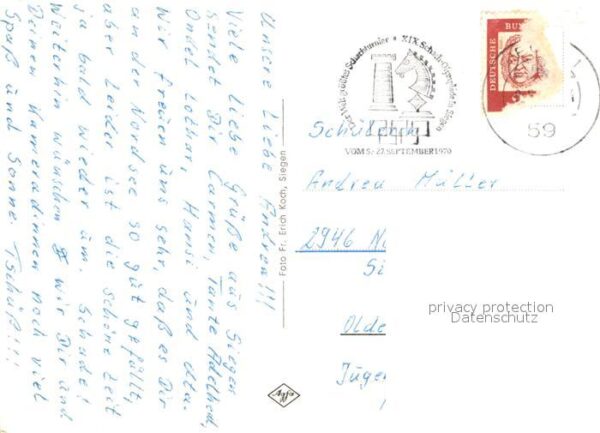 Unsere Liebe Andrea!!!
Viele liebe Grüße aus Siegen
sendet Dir Carmen, Tante Adelheid,
Onkel Lothar, Hansi und Uta.
Wir freuen uns sehr, daß es Dir
an der Nordsee so gut gefällt,
aber leider ist die schöne Zeit
ja bald wieder um. Schade!
Weiterhin wünschen wir Dir und
Deinen Kameradinnen noch viel
Spaß und Sonne. Tschüß!!!
Foto Fr. Erich Koch, Siegen
Agfa
Das Weltgrößte Schachturnier • XIX. Schach-Olympiade in Siegen
VOM 5.-27. SEPTEMBER 1970
DEUTSCHE BUN
59
Schülerin
Andrea Müller
2946 N
Si
Olde
Jugen
privacy protection
Datenschutz